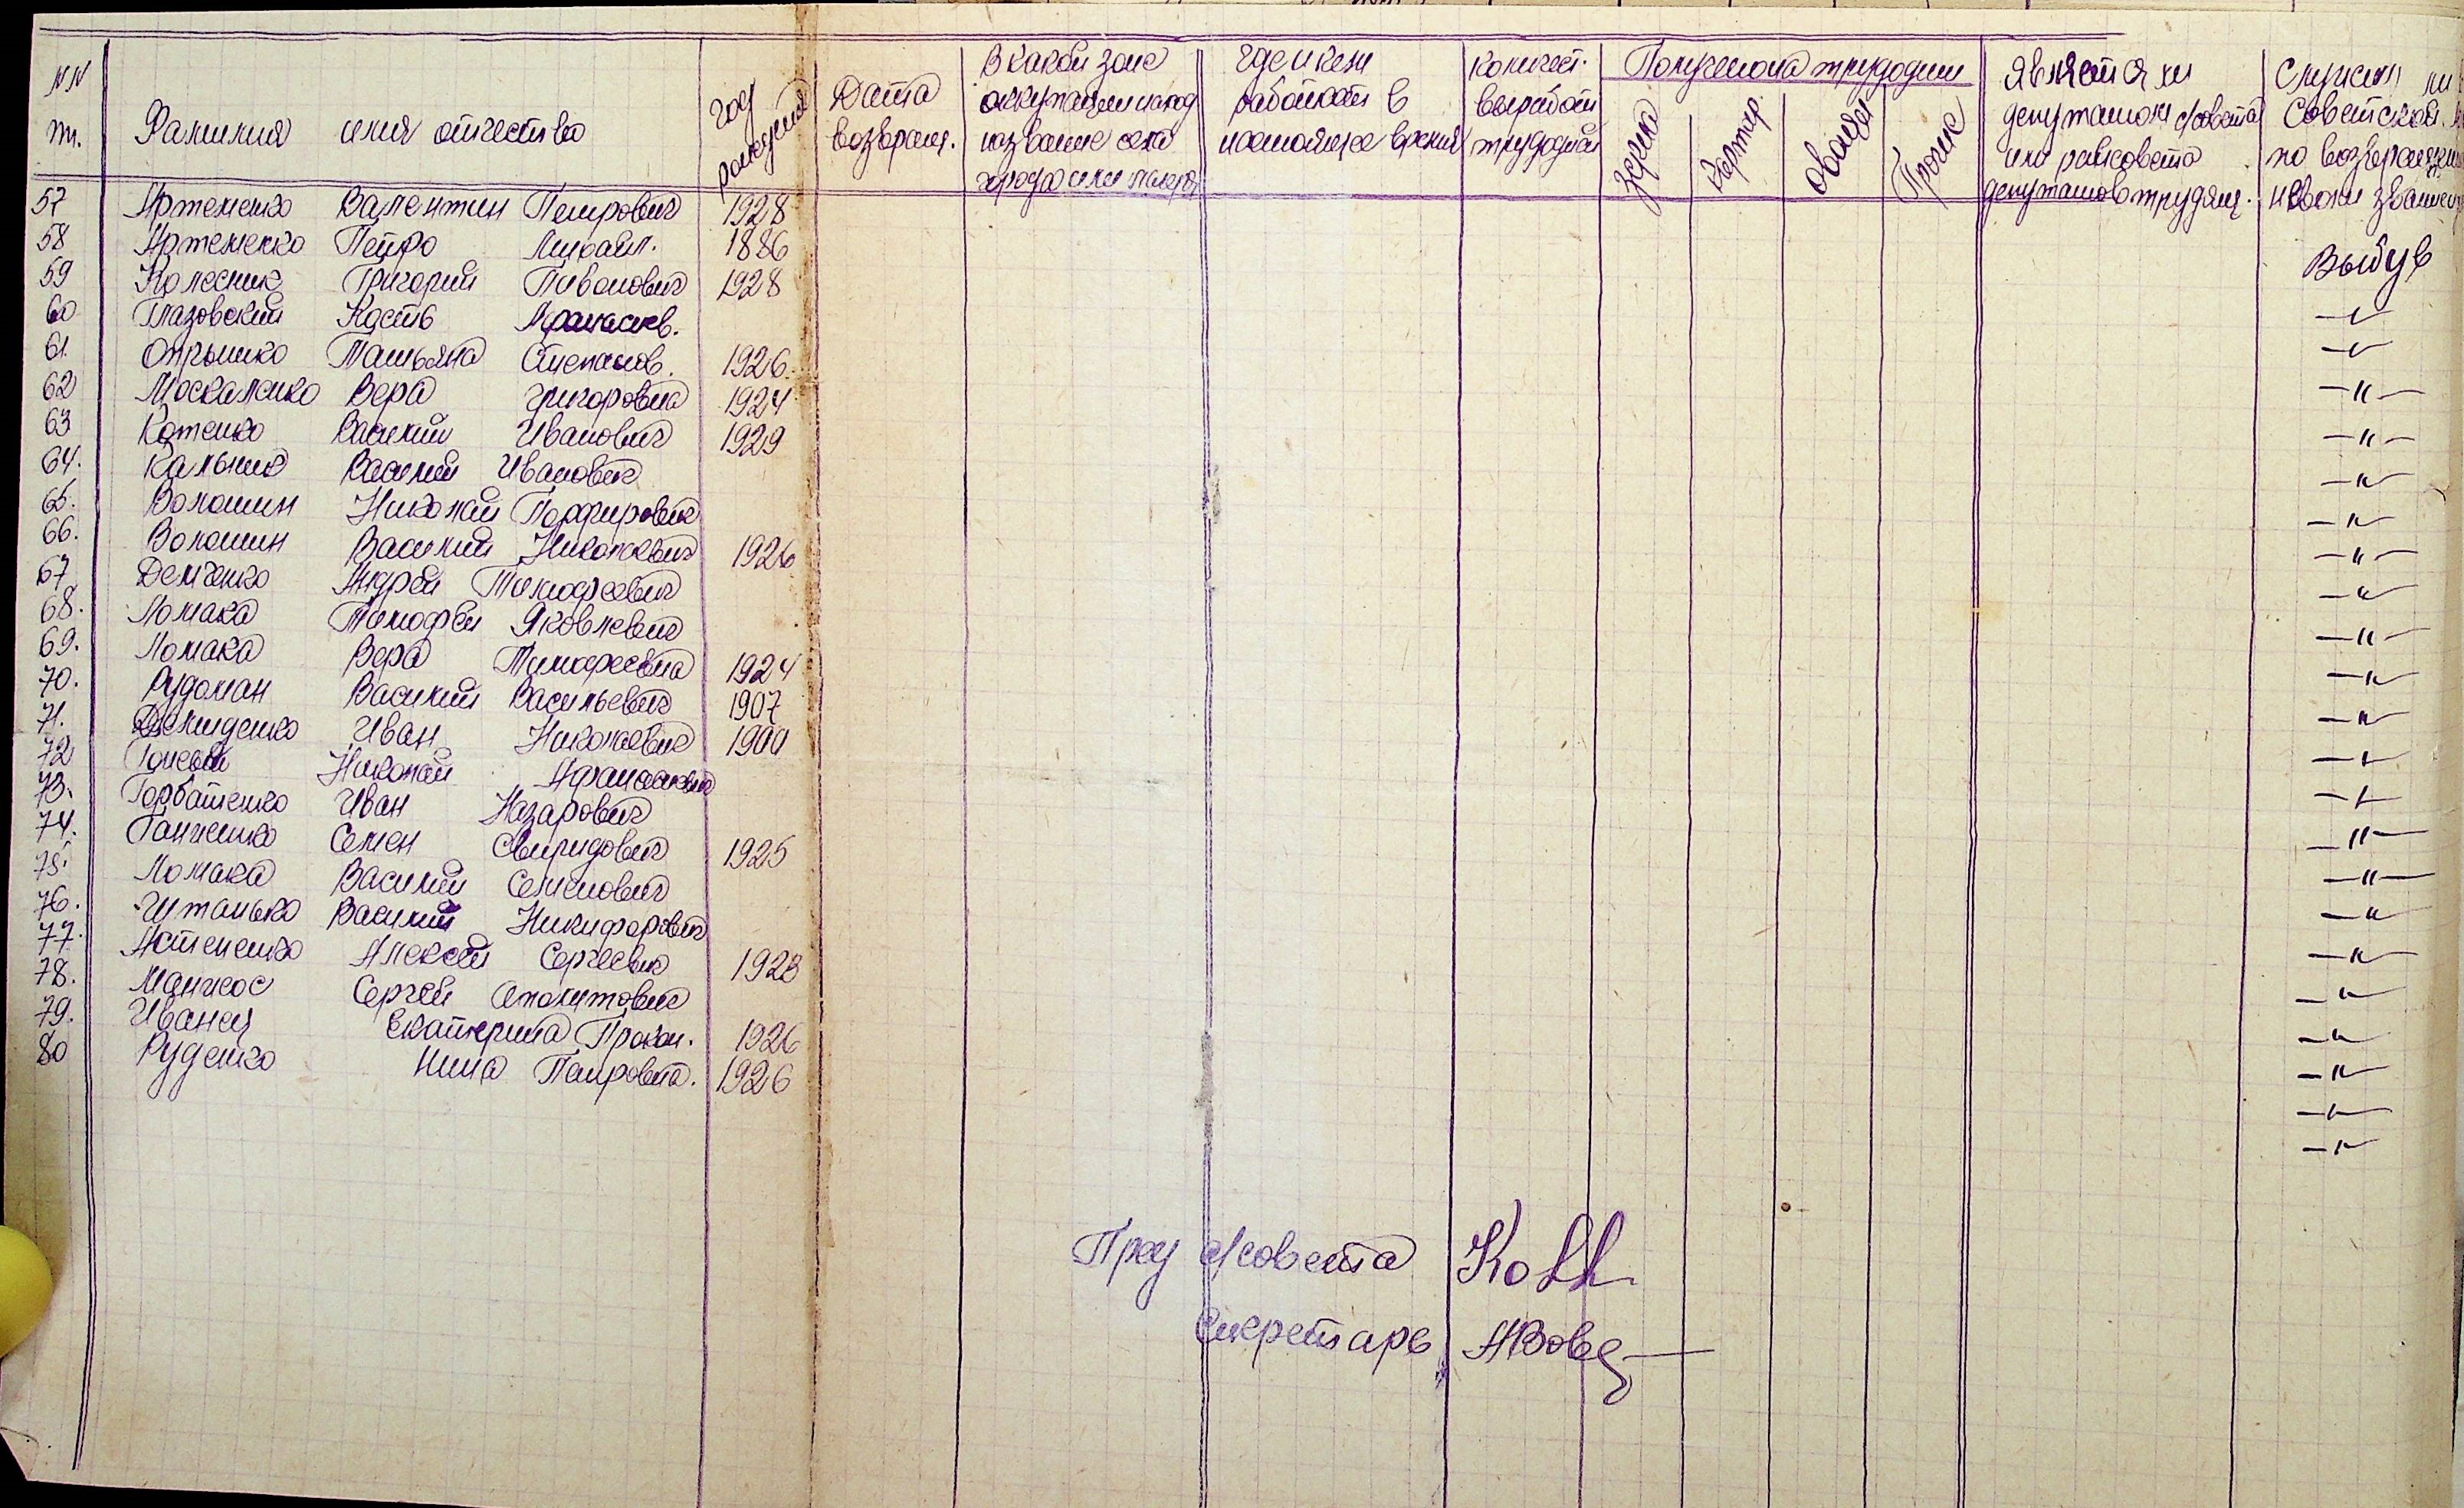 NN пп.
Фамилия имя отчество
год рождения
Дата возвращ.
В какой зоне оккупации наход название села города или лагеря
Где и кем работает в настоящее время
Количест. выработ трудодней
Получено на трудодни
зерна
картоф.
овощей
Прочие
Является ли депутатом с/совета или райсовета депутатов трудящ.
Служил ли Советской по возвращении
57 Артеменко Валентин Петрович 1928 Выбув
58 Артеменко Петро Михайл. 1886 —"—
59 Колесник Григорий Пиванович 1928 —"—
60 Глазовский Кость Афанасиев. —"—
61. Опрышко Татьяна Степанов. 1926. —"—
62 Москаленко Вера Григоровна 1924 —"—
63 Котенко Василий Иванович 1929 —"—
64. Кальник Василий Иванович —"—
65. Волошин Николай Порфирович —"—
66. Волошин Василий Николаевич 1926 —"—
67 Демченко Андрей Тимофеевич —"—
68. Ломака Тимофей Яковлевич —"—
69. Ломака Вера Тимофеевна 1924 —"—
70. Рудоман Василий Васильевич 1907 —"—
71. Демиденко Иван Николаевич 1900 —"—
72 Николай Афанасиевич —"—
73. Горбатенко Иван Назарович —"—
74. Ганженко Семен Свиридович 1925 —"—
75. Ломака Василий Семенович —"—
76. Штанько Василий Никифорович —"—
77. Астененко Алексей Сергеевич 1923 —"—
78. Манжос Сергей —"—
79. Иванец Екатерина Прокоп. 1926 —"—
80 Руденко Нина Петровна. 1926 —"—
Пред с/совета
Сикретарь